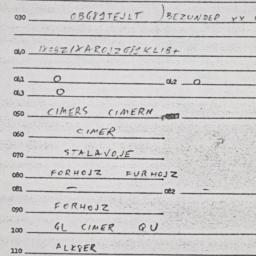 030 OBGRSTEJLT )BEZUNDER
040
041 O 042 O
043 O
050 CIMERS CIMERN
060 CIMER
070 STALAVOJE
080 FORHOJZ FURHOJZ
081 – 082 –
090 FORHOJZ
100 GL CIMER QU
110 ALKBER